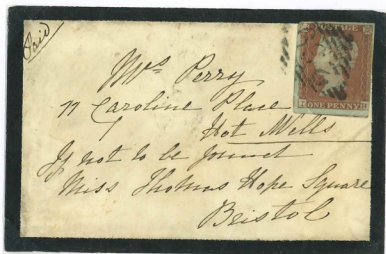 Paid
POSTAGE
ONE PENNY
Mrs Perry
11 Caroline Place
Hot Wells
If not to be found
Miss Thomas Hope Square
Bristol